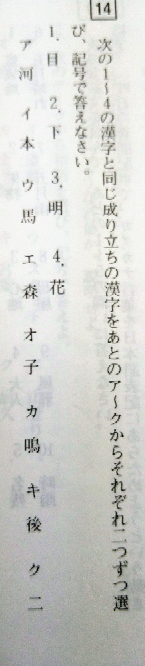 14
次の1～4の漢字と同じ成り立ちの漢字をあとのア～クからそれぞれ二つずつ選
び、記号で答えなさい。
1．目　2．下　3．明　4．花
ア 河　イ 本　ウ 馬　エ 森　オ 子　カ 鳴　キ 後　ク 二